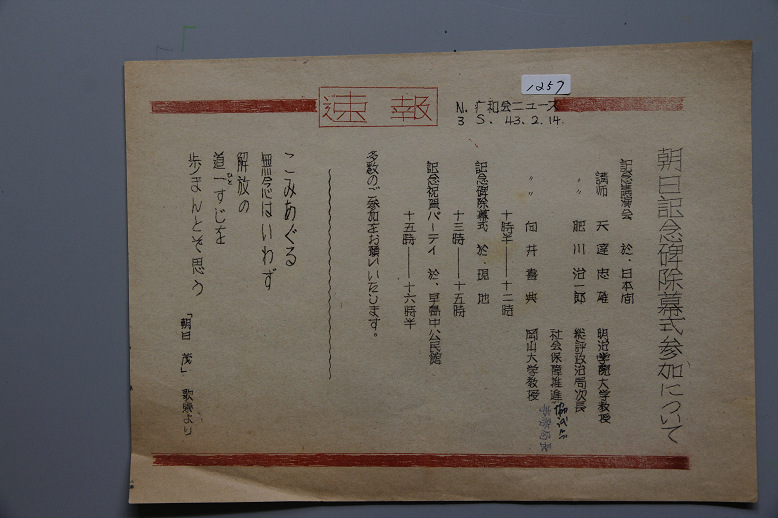 1257
速報
N. 3 
疒和会ニュース
S. 43.2.14.
朝日記念碑除幕式参加について
記念講演会 於.日本間
講師 天達忠雄 明治学院大学教授
〃 肥川治一郎 総評政治局次長
社会保障推進協議会
事務局長
〃 向井喜典 岡山大学教授
十時半――十二時
記念碑除幕式 於.現地
十三時――十五時
記念祝賀パーティ 於.早島中公民館
十五時――十六時半
多数のご参加をお願いいたします。
こみあぐる
無念はいわず
解放の
道一すじを
ひと
歩まんとぞ思う
「朝日 茂」歌集より